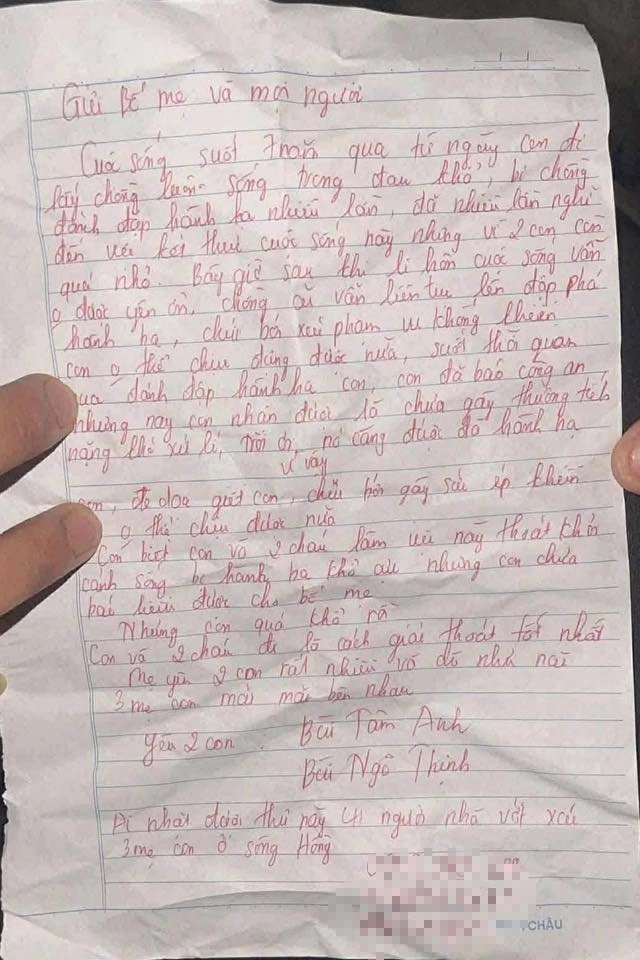 Gửi Bố mẹ và mọi người
Cuộc sống suốt 7 năm qua từ ngày con đi
lấy chồng luôn sống trong đau khổ, bị chồng
đánh đập hành hạ nhiều lần, đã nhiều lần nghĩ
đến việc kết thúc cuộc sống này nhưng vì 2 con còn
quá nhỏ. Bây giờ sau khi li hôn cuộc sống vẫn
o được yên ổn, chồng cũ vẫn liên tục lên đập phá
hành hạ, chửi bới xúc phạm khiến
con o thể chịu đựng được nữa, suốt thời gian
qua đánh đập hành hạ con, con đã báo công an,
nhưng nay con nhận được là chưa gây thương tích
nặng thể xử lí, trời ơi, nó càng được đà hành hạ
vì vậy
con, đe doạ giết con, chửi bới gây sức ép khiến
o thể chịu được nữa
Con biết con và 2 cháu làm việc này thoát khỏi
cảnh sống bị hành hạ khổ nhưng con chưa
báo hiếu được cho bố mẹ
Nhưng con quá khổ rồi
Con và 2 cháu đi là cách giải thoát tốt nhất
Mẹ yêu 2 con rất nhiều và dù như nào
3 mẹ con mãi mãi bên nhau
Yêu 2 con: Bùi Tâm Anh
Bùi Ngô Thịnh
Ai nhặt được thư này người nhà vớt xác
3 mẹ con ở sông Hồng
CHÂU